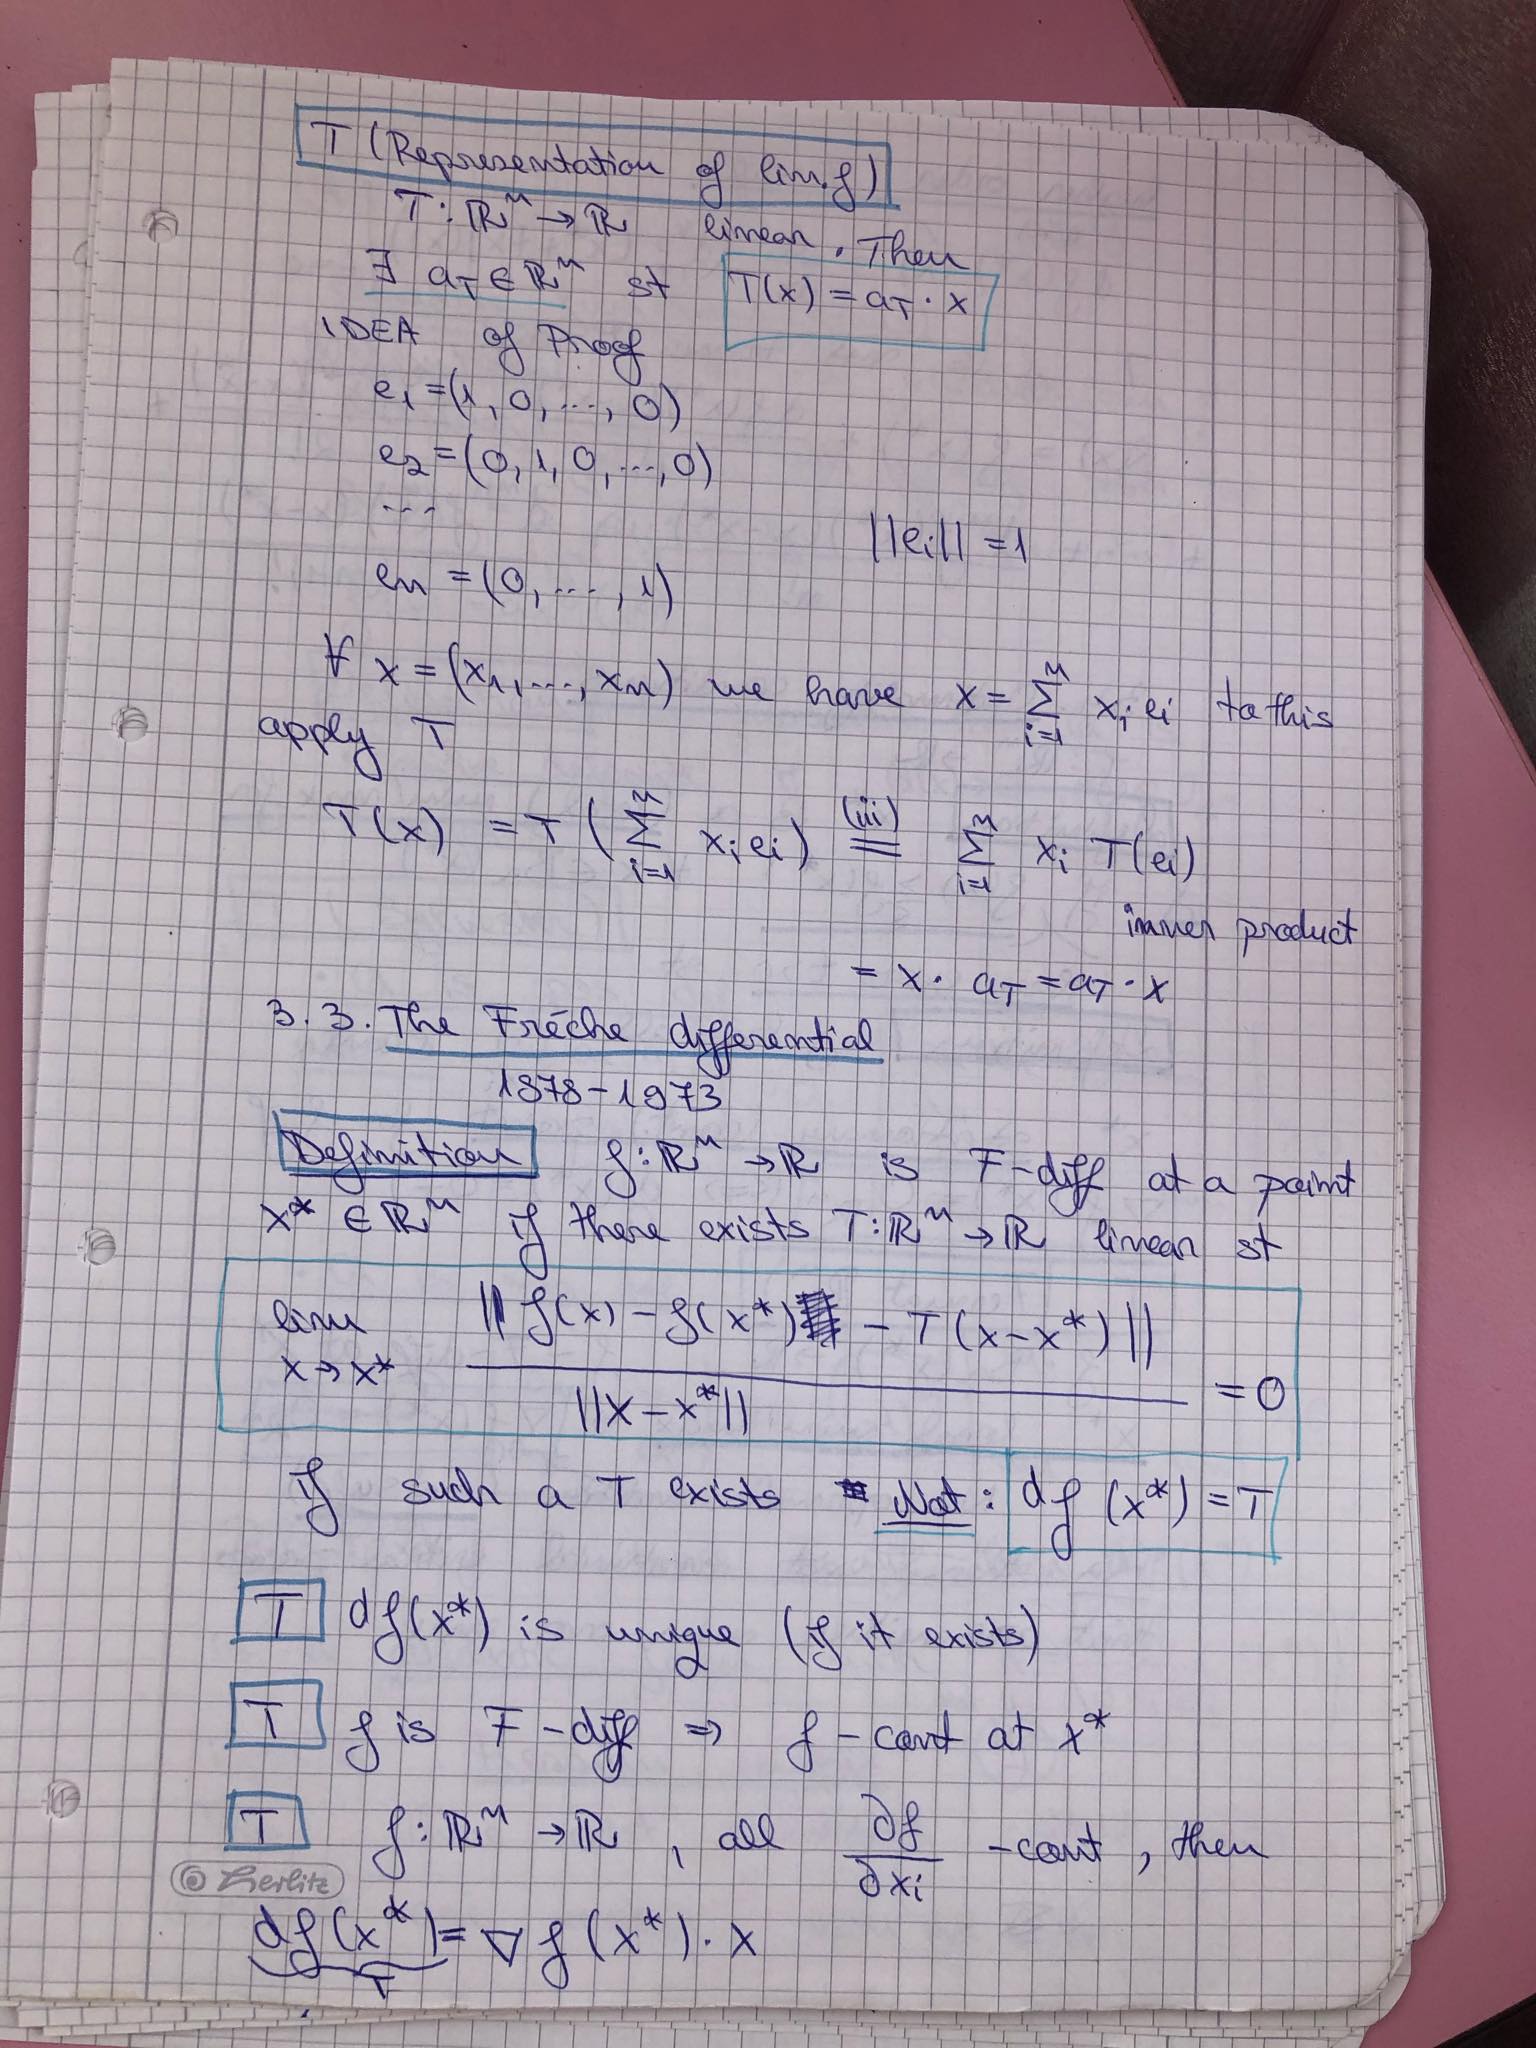 T (Representation of lin. f)
T : ℝⁿ → ℝ linear. Then
∃ a_T ∈ ℝⁿ st T(x) = a_T · x
IDEA of Proof
e₁ = (1, 0, ..., 0)
e₂ = (0, 1, 0, ..., 0)
...
||eᵢ|| = 1
eₙ = (0, ..., 1)
∀ x = (x₁, ..., xₙ) we have x = ∑ᵢ₌₁ⁿ xᵢ eᵢ to this
apply T
T(x) = T (∑ᵢ₌₁ⁿ xᵢ eᵢ) (iii) = ∑ᵢ₌₁ⁿ xᵢ T(eᵢ)
inner product
= x · a_T = a_T · x
3.3. The Fréche differential
1878-1973
Definition f : ℝⁿ → ℝ is F-diff at a point
x* ∈ ℝⁿ if there exists T : ℝⁿ → ℝ linear st
lim x→x* || f(x) - f(x*) - T(x-x*) || / ||x-x*|| = 0
if such a T exists Not: df(x*) = T
T df(x*) is unique (if it exists)
T f is F-diff ⇒ f - cont at x*
T f : ℝⁿ → ℝ, all ∂f/∂xᵢ - cont, then
© Herlitz
df(x*) = ∇f(x*) · x
T